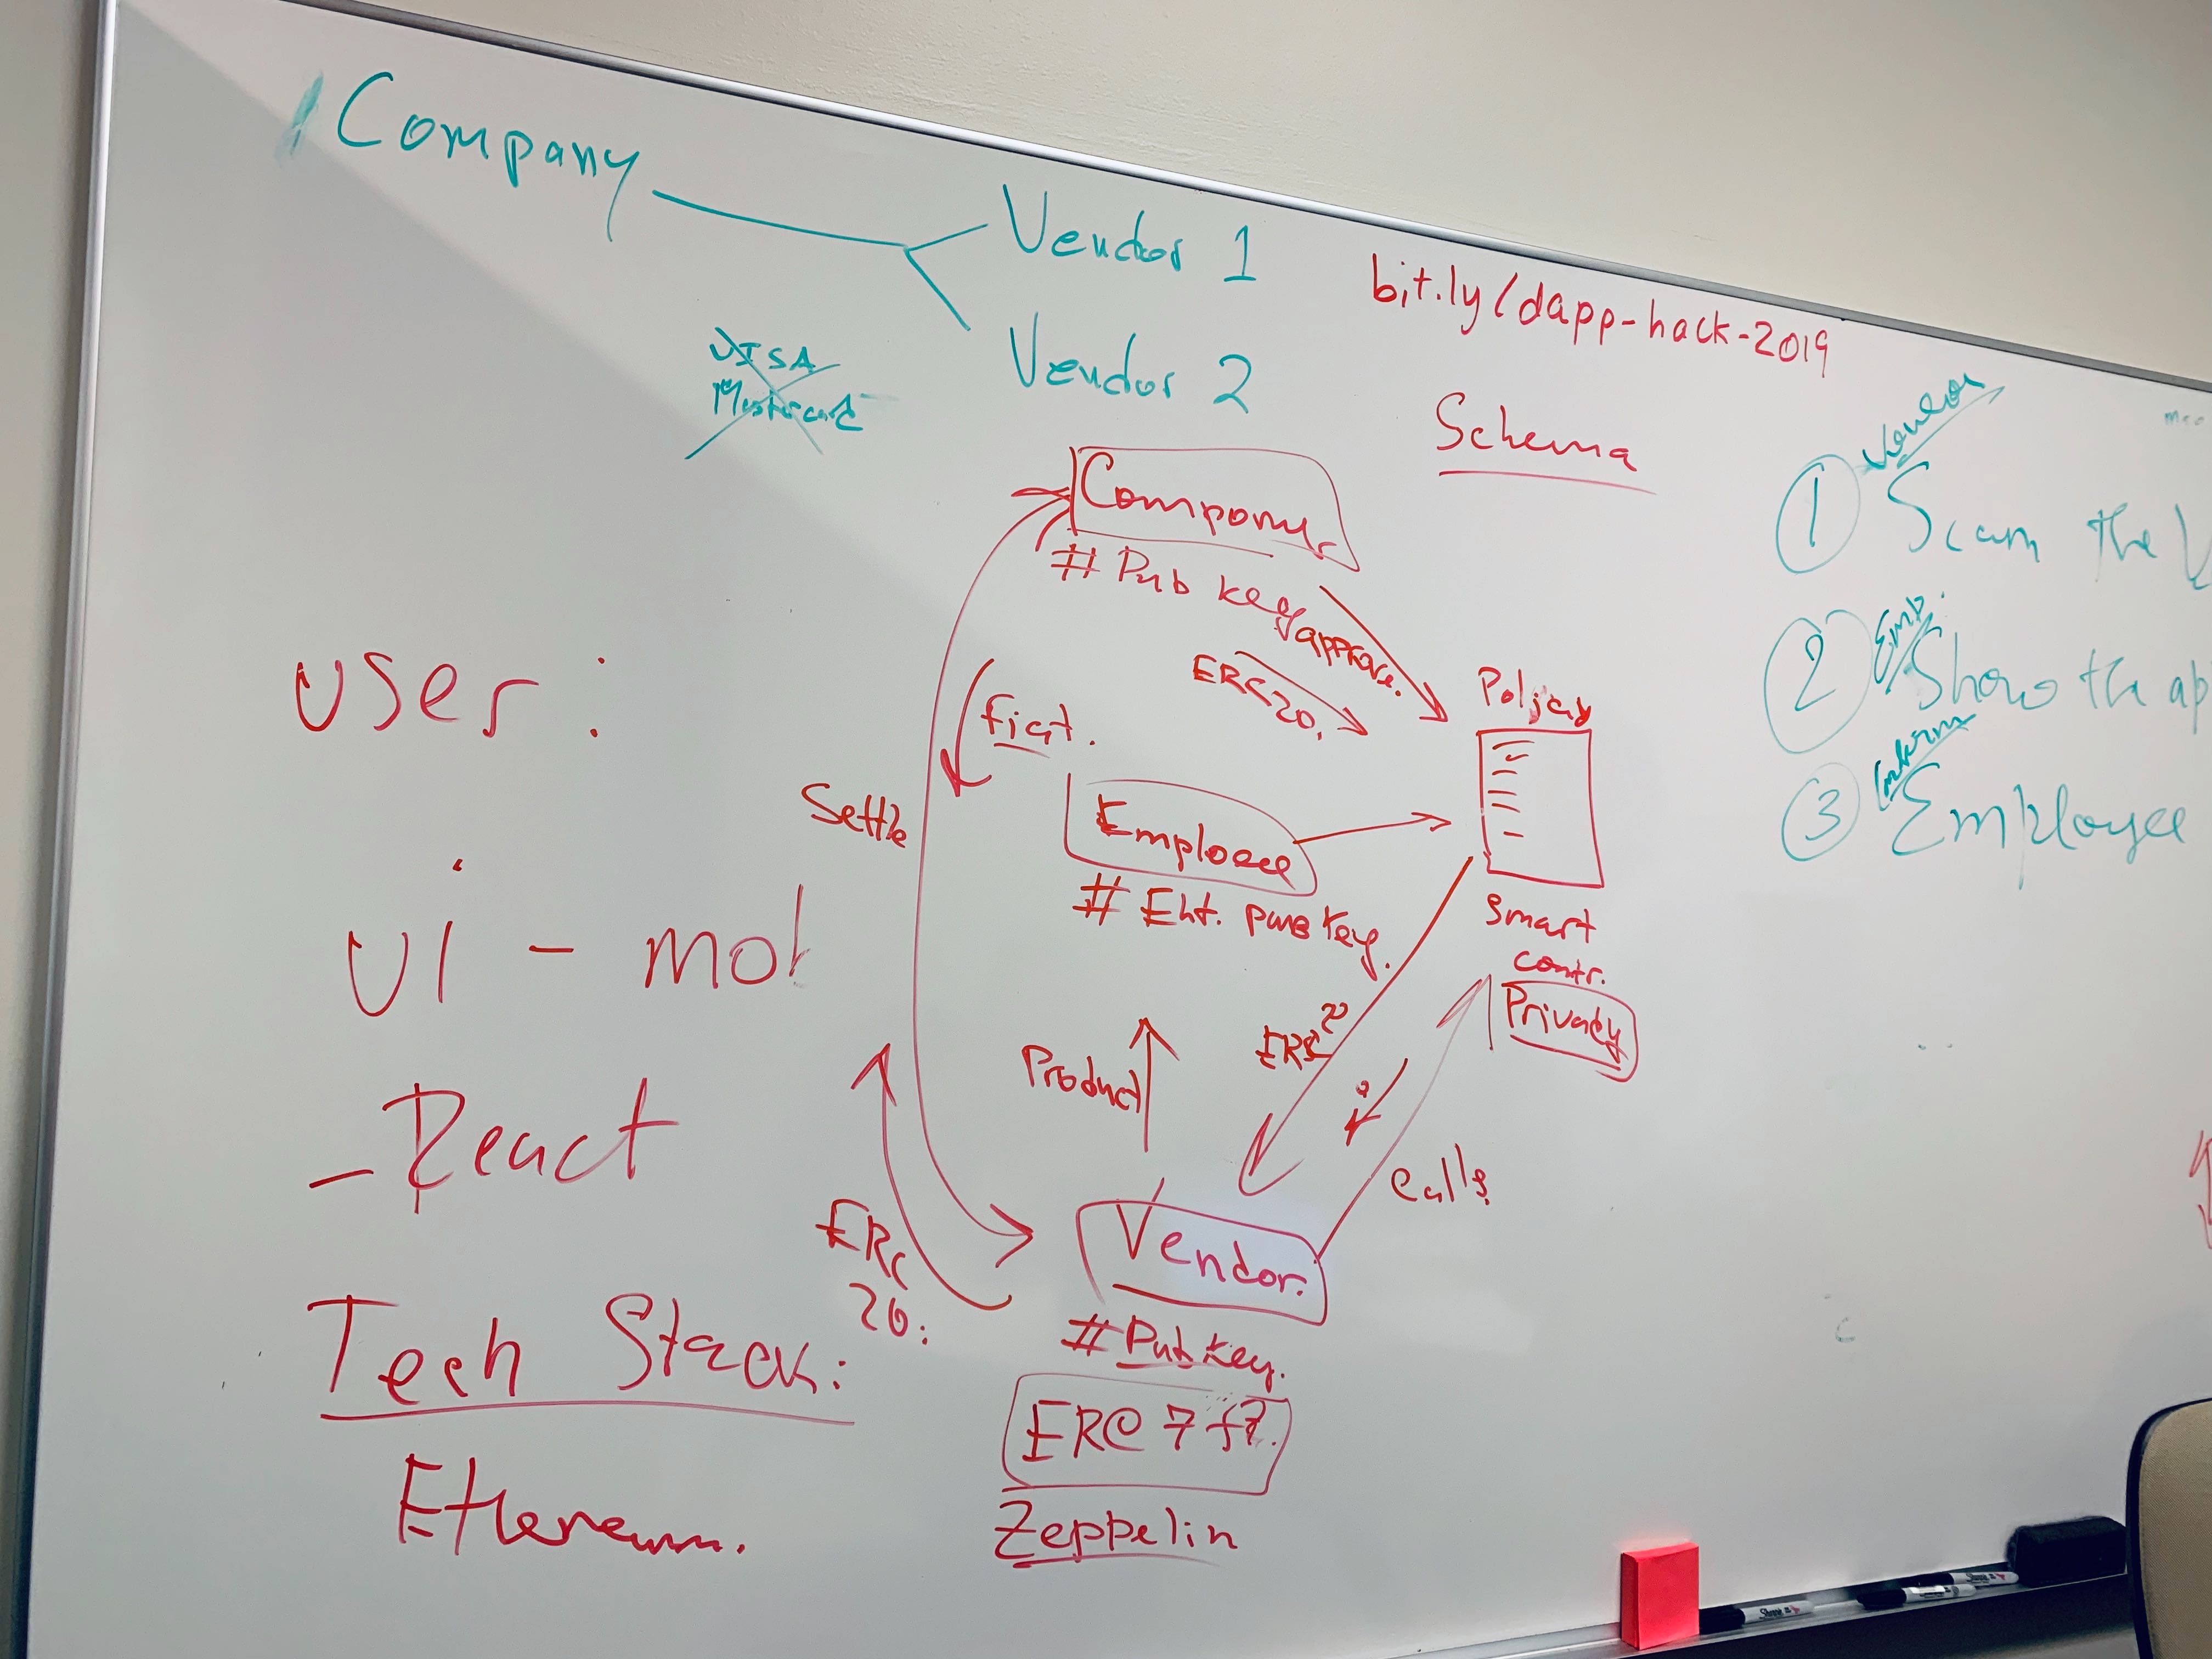 Company
Vendor 1
Vendor 2
VISA
Mastercard
bit.ly/dapp-hack-2019
Schema
Company
# Pub key
approve.
ERC20.
fiat.
Settle
Employee
# Eht. pub key.
smart
contr.
Privacy
ERC20
Product
calls
Vendor.
# Pub key.
ERC
20:
Zeppelin
user:
ui - mob
- React
Tech Stack:
Ethereum.
1 Vendor
Scan the V
2 Emp.
Show the ap
3
Employee